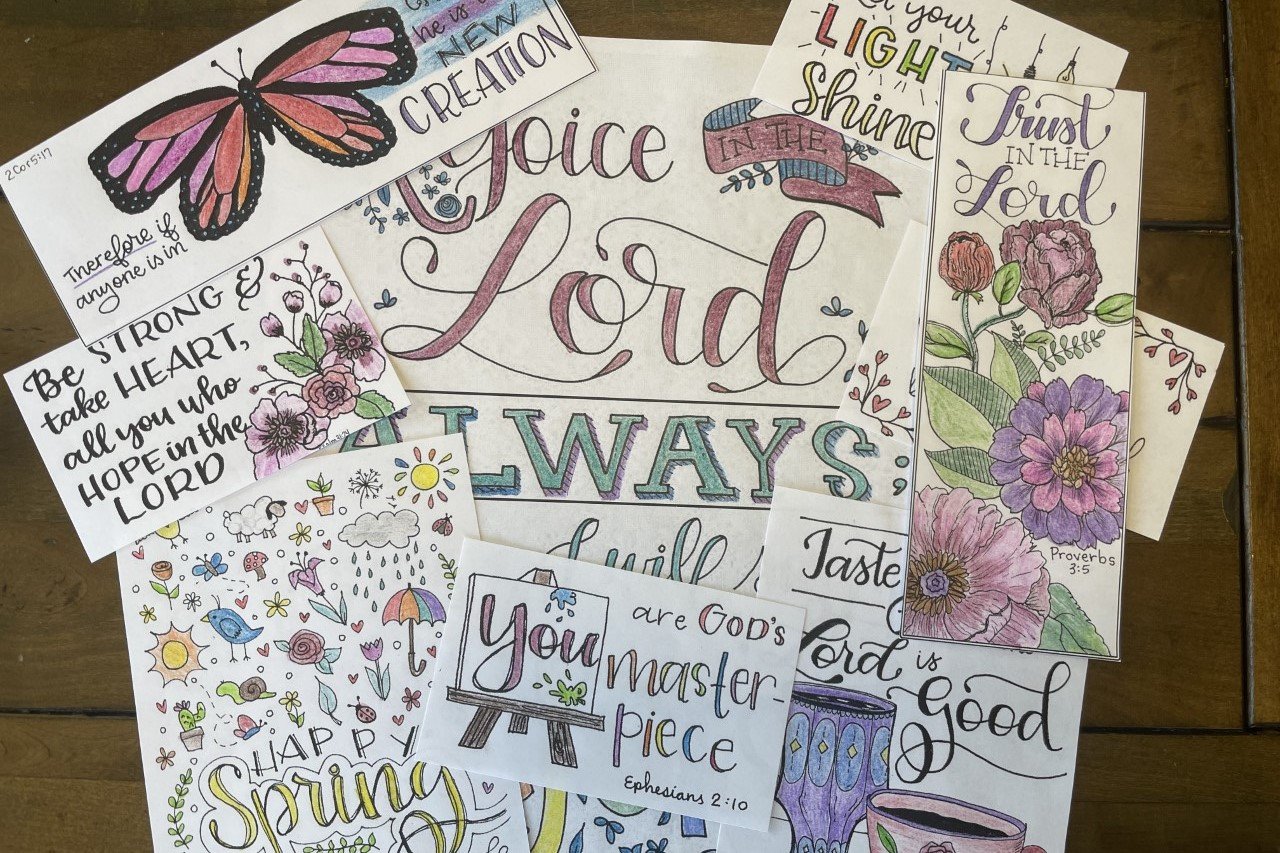 he is a
NEW
CREATION
2 Cor 5:17
Therefore if
anyone is in
your
LIGHT
Shine
Trust
IN THE
Lord
Proverbs
3:5
joice
IN THE
Lord
ALWAYS;
I will
BE STRONG &
take HEART,
all you who
HOPE in the
LORD
HAPPY
Spring
You
are GOD'S
master-
piece
Ephesians 2:10
Taste
Lord is
Good